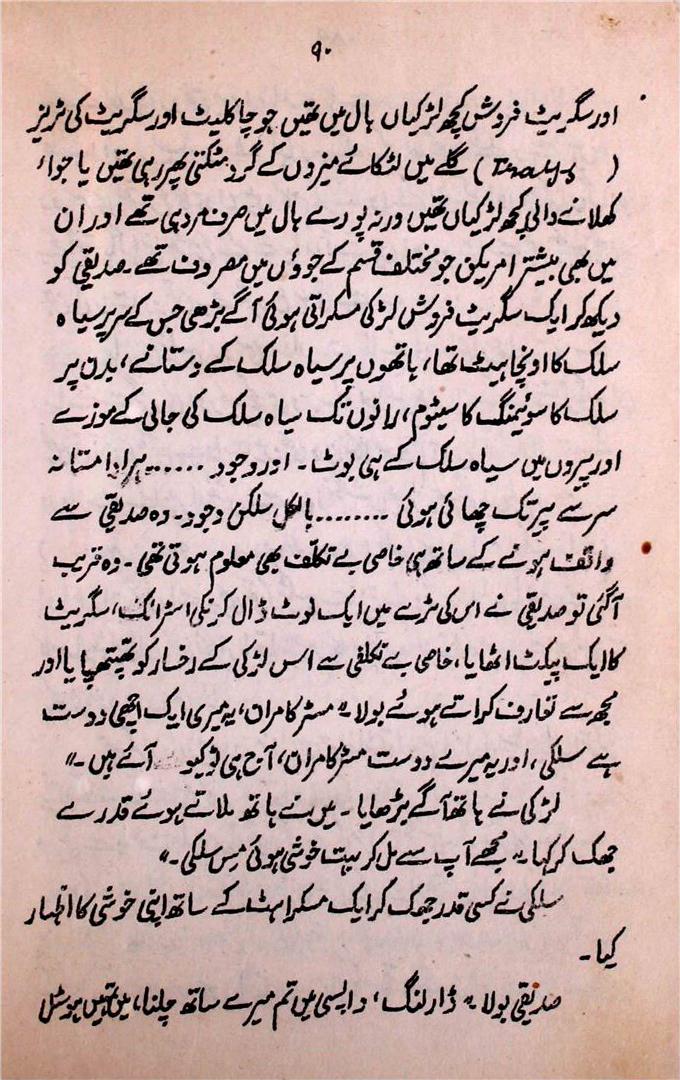 ۹۰
اور سگریٹ فروش کچھ لڑکیاں ہال میں تھیں جو چاکلیٹ اور سگریٹ کی ٹریز
(Trays) گلے میں لٹکائے میزوں کے گرد مٹکتی پھر رہی تھیں یا جواء
کھلانے والی کچھ لڑکیاں تھیں ورنہ پورے ہال میں صرف مرد ہی تھے اور ان
میں بھی بیشتر امریکن جو مختلف قسم کے جوؤں میں مصروف تھے۔ صدیقی کو
دیکھ کر ایک سگریٹ فروش لڑکی مسکراتی ہوئی آگے بڑھی جس کے سر پر سیاہ
سلک کا اونچا ہیٹ تھا، ہاتھوں پر سیاہ سلک کے دستانے، بدن پر
سلک کا سوئیمنگ کا سیٹوم، رانوں تک سیاہ سلک کی جالی کے موزے
اور پیروں میں سیاہ سلک کے ہی بوٹ۔ اور وجود ...... ہر ادا مستانہ
سر سے پیر تک چھائی ہوئی ........ بالکل سلکن وجود۔ وہ صدیقی سے
واقف ہونے کے ساتھ ہی خاصی بے تکلف بھی معلوم ہوتی تھی۔ وہ قریب
آگئی تو صدیقی نے اس کی ٹرے میں ایک نوٹ ڈال کر لکی اسٹرائک، سگریٹ
کا ایک پیکٹ اٹھایا، خاصی بے تکلفی سے اس لڑکی کے رخسار کو تھپتھپایا اور
مجھ سے تعارف کراتے ہوئے بولا "مسٹر کامران، یہ میری ایک اچھی دوست
ہے سلکی، اور یہ میرے دوست مسٹر کامران، آج ہی ٹوکیو آئے ہیں۔"
لڑکی نے ہاتھ آگے بڑھایا۔ میں نے ہاتھ ملاتے ہوئے قدرے
جھک کر کہا "مجھے آپ سے مل کر بہت خوشی ہوئی مس سلکی۔"
سلکی نے کسی قدر جھک کر ایک مسکراہٹ کے ساتھ اپنی خوشی کا اظہار
کیا۔
صدیقی بولا "ڈارلنگ، واپسی میں تم میرے ساتھ چلنا، میں تمہیں ہوسٹل